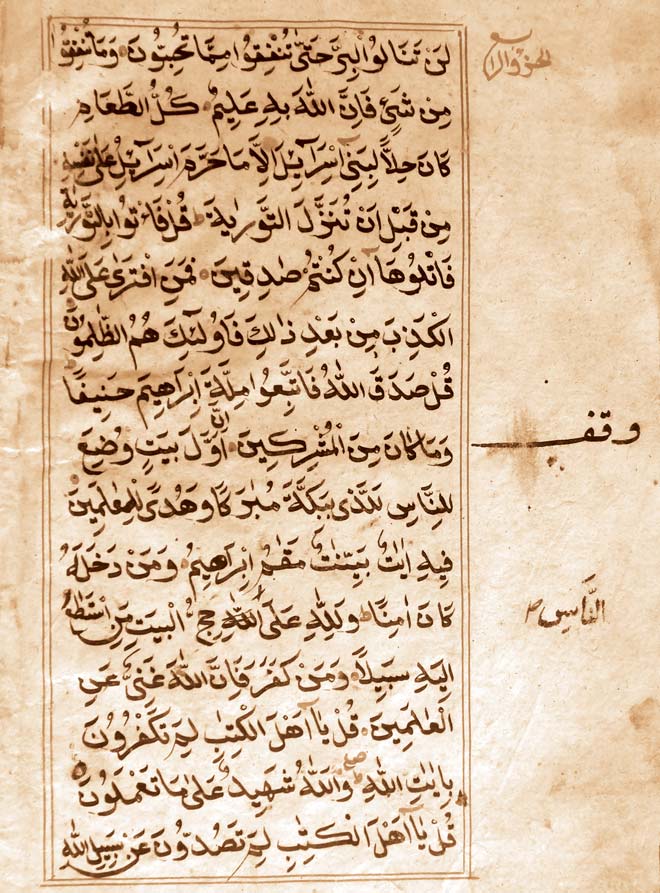 لَنْ تَنَالُوا الْبِرَّ حَتّٰى تُنْفِقُوا مِمَّا تُحِبُّونَ وَمَا تُنْفِقُوا
مِنْ شَيْءٍ فَاِنَّ اللّٰهَ بِهِ عَلِيمٌ كُلُّ الطَّعَامِ
كَانَ حِلًّا لِبَنِي اِسْرَآئِلَ اِلَّا مَا حَرَّمَ اِسْرَآئِلُ عَلٰى نَفْسِهِ
مِنْ قَبْلِ اَنْ تُنَزَّلَ التَّوْرٰيةُ قُلْ فَأْتُوا بِالتَّوْرٰيةِ
فَاتْلُوهَا اِنْ كُنْتُمْ صٰدِقِينَ فَمَنِ افْتَرٰى عَلَى اللّٰهِ
الْكَذِبَ مِنْ بَعْدِ ذٰلِكَ فَاُولٰئِكَ هُمُ الظّٰلِمُونَ
قُلْ صَدَقَ اللّٰهُ فَاتَّبِعُوا مِلَّةَ اِبْرَاهِيمَ حَنِيفًا
وَمَا كَانَ مِنَ الْمُشْرِكِينَ اِنَّ اَوَّلَ بَيْتٍ وُضِعَ
لِلنَّاسِ لَلَّذِي بِبَكَّةَ مُبٰرَكًا وَهُدًى لِلْعٰلَمِينَ
فِيهِ اٰيٰتٌ بَيِّنٰتٌ مَقٰمُ اِبْرَاهِيمَ وَمَنْ دَخَلَهُ
كَانَ اٰمِنًا وَلِلّٰهِ عَلَى اللّٰهِ حِجُّ الْبَيْتِ مَنِ اسْتَطَاعَ
اِلَيْهِ سَبِيلًا وَمَنْ كَفَرَ فَاِنَّ اللّٰهَ غَنِيٌّ عَنِ
الْعٰلَمِينَ قُلْ يَا اَهْلَ الْكِتٰبِ لِمَ تَكْفُرُونَ
بِاٰيٰتِ اللّٰهِ وَاللّٰهُ شَهِيدٌ عَلٰى مَا تَعْمَلُونَ
قُلْ يَا اَهْلَ الْكِتٰبِ لِمَ تَصُدُّونَ عَنْ سَبِيلِ اللّٰهِ
وقف
النَّاسِ